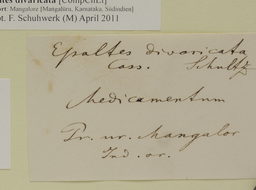 divaricata [CompChLt]
ort: Mangalore [Mangaluru, Karnataka, Südindien]
t. F. Schuhwerk (M) April 2011
Epaltes divaricata
Cass. Schultz
Medicamentum
Pr. ur. Mangalor
Ind. or.